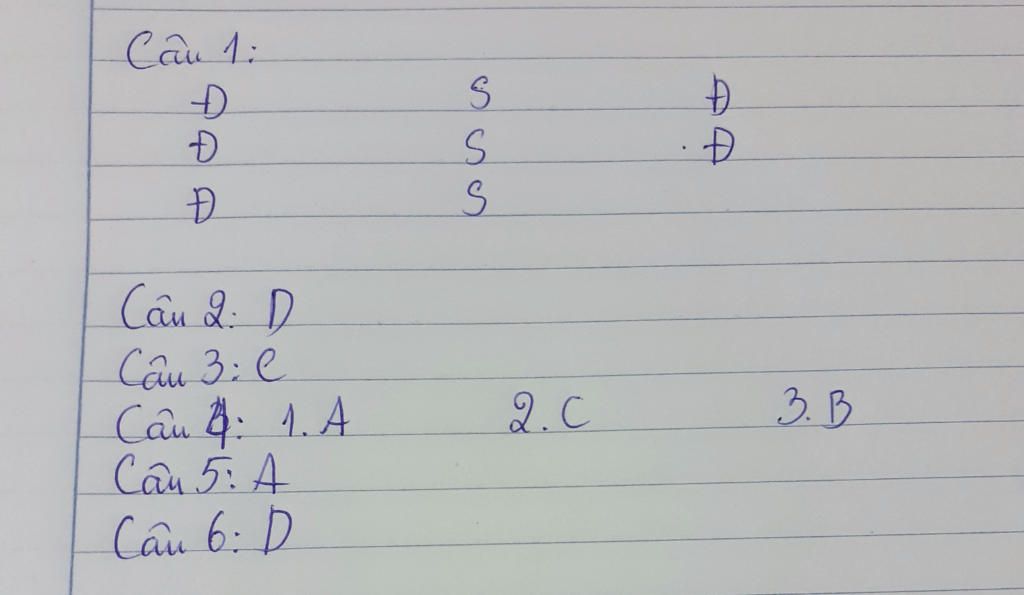 Câu 1:
Đ S Đ
Đ S Đ
Đ S
Câu 2: D
Câu 3: C
Câu 4: 1. A 2. C 3. B
Câu 5: A
Câu 6: D